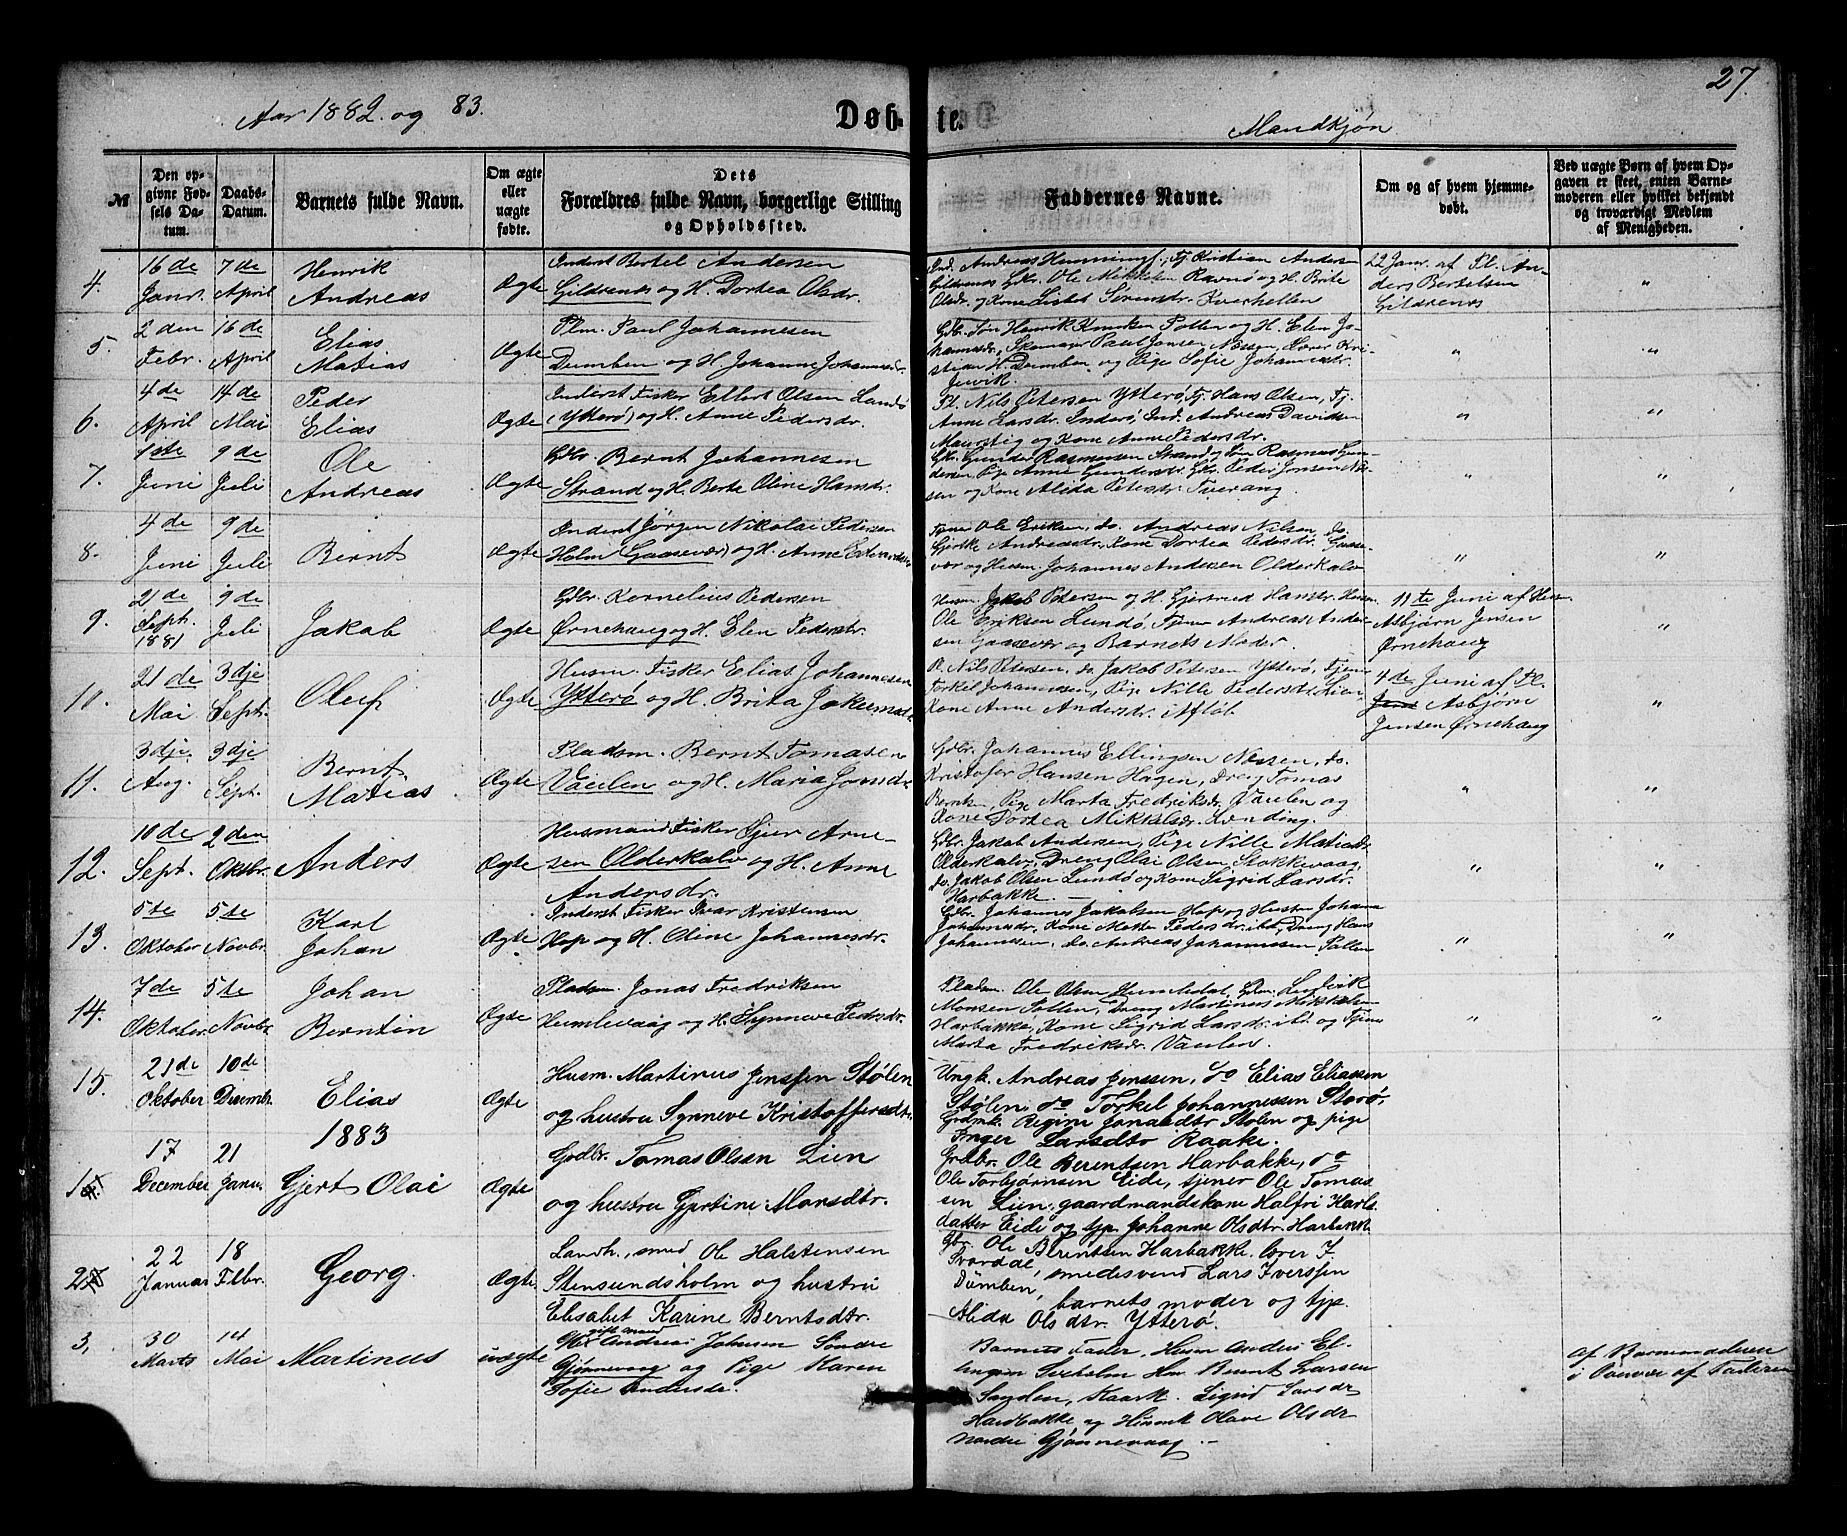 27.
Aar 1882 og 83.
Døb-
te.
Mandkjøn
№
Den op-
givne Fød-
sels Da-
tum.
Daabs-
Datum.
Barnets fulde Navn.
Om ægte
eller
uægte
fødte.
Dets
Forældres fulde Navn, borgerlige Stilling
og Opholdssted.
Faddernes Navne.
Om og af hvem hjemme-
døbt.
Ved uægte Børn af hvem Op-
gaven er skeet, enten Barne-
moderen eller hvilket bekjendt
og troværdigt Medlem
af Menigheden.
4.
16de
Janr.
7de
April
Henrik
Andreas
Ægte
Inderst Bertel Andersen
Gildrenes og H. Dortea Olsdr.
Ind. Andreas Henningsf., Tj. Kristian Anders
Gildrenes Gbr. Ole Mikkelsen Ravnø og H. Brite
Olsdr. og Kone Lisbet Sørensdr. Kverhellen
22 Janr. af Pl. An-
ders Bertelsen
Gildrenes
"
5.
2den
Febr.
16de
April
Elias
Matias
Ægte
Plm. Paul Johannesen
Dumben og H. Johanne Johannesdr.
Gbr. Søn Henrik Knutsen Pollen og H. Elen Jo-
hannesdr., Skomager Paul Jansen Nessen, Lærer Kri-
stian H. Dumben og Pige Sofie Johannesdr.
"
"
6.
4de
April
14de
Mai
Peder
Elias
Ægte
Inderst Fisker Ellert Olsen Lundø
(Ytterø) og H. Anne Pedersdr.
Pl. Nils Petersen Ytterø, Tj. Hans Olsen, Tj.
Anne Larsdr. Inderø, Ind. Andreas Davidsen
Maurstig og Kone Anne Pedersdr.
"
"
7.
1ste
Juni
9de
Juli
Ole
Andreas
Ægte
Gdbr. Bernt Johannesen
Strand og H. Berte Oline Hansdr.
Gbr. Gunder Rasmussen Strand og Søn Rasmus Gun-
dersen Pige Anne Gundersdr. Gbr. Peder Jonsen Nes-
sen og Kone Alida Petersdr. Tverang.
"
"
8.
4de
Juni
9de
Juli
Bernt
Ægte
Inderst Jørgen Nikolai Pedersen
Holm (Gaasevær) og H. Anne
Tjener Ole Eriksen, do. Andreas Nilsen, do.
Gjertke Andreasdr., Kone Dortea Pedersdr. Gaase-
vær og Husm. Johannes Andersen Olderkalv
"
"
9.
21de
Sept.
1881
9de
Juli
Jakob
Ægte
Gdbr. Kornelius Pedersen
Ørnehaug og H. Elen Pedersdr.
Husm. Jakob Pedersen og H. Gjertrud Hansdr. Husm.
Ole Eriksen Lundø, Tjener Andreas Ander-
sen Gaasevær og Barnets Moder.
11te Juni af Hm.
Asbjørn Jensen
Ørnehaug
"
10.
21de
Mai
3dje
Sept.
Oluf
Ægte
Husm. Fisker Elias Johannesen
Ytterø og H. Brita Jakobsdr.
Pl. Nils Petersen, do. Jakob Petersen Ytterø, Tjener
Torkel Johannessen, Pige Nille Pedersdr. Lien
Kone Anne Andersdr. Afløb.
4de Juni af Pl.
Asbjørn
Jensen Ørnehaug
"
11.
3dje
Aug.
3dje
Sept.
Bernt
Matias
Ægte
Pladsm. Bernt Tomasen
Vaulen og H. Maria Jonsdr.
Gdbr. Johannes Ellingsen Nessen, do.
Kristofer Hansen Hagen, Dreng Tomas
Berntsen, Pige Marta Fredriksdr. Vaulen og
Kone Dortea Mikkelsdr. Lending.
"
"
12.
10de
Sept.
2den
Oktbr.
Anders
Ægte
Husmand Fisker Sjur Arne-
sen Olderkalv og H. Anne
Andersdr.
Gbr. Jakob Andersen, Pige Nille Matiasdr.
Olderkalv, Dreng Olai Olsen Stokkevaag,
do. Jakob Olsen Lundø og Kone Sigrid Larsdr.
Harbakke.
"
"
13.
5te
Oktober
5te
Novbr.
Karl
Johan
Ægte
Inderst Fisker Ivar Kristensen
Hop og H. Oline Johannesdr.
Gdbr. Johannes Jakobsen Hop og Hustru Johanna
Johannesdr., Kone Mette Pedersdr. ibd., Dreng Hans
Johannessen, do. Andreas Johannessen Pollen
"
"
14.
7de
Oktober
5te
Novbr
Johan
Berntin
Ægte
Pladsm. Jonas Fredriksen
Humlevaag og H. Synneve Pedersdr.
Pladsm. Ole Olsen Gdm. Ludvik
Monsen Pollen, Dreng Martinus Mikkelsen
Harbakke, Kone Sigrid Larsdr. ibd. og Tjener
Marta Fredriksdr. Vaulen.
"
"
15.
21de
Oktober
10de
Decembr.
Elias
Ægte
Husm. Martinus Jenssen Stølen
og hustru Synneve Kristoffersdtr.
Ungk. Andreas Jenssen, do Elias Eliassen
Stølen, do Torkel Johannessen Storø,
Grdmk. Regine Jonasdtr Stølen og pige
Inger Larsdtr Raake.
1883
1.
17
December
21
Janu.
Gjert Olai
Ægte
Grdbr. Tomas Olsen Lien
og hustru Gjertine Monsdtr.
Grdbr. Ole Berentsen Harbakke, do
Ole Torbjørnsen Eide, tjener Ole Tomas
sen Lien, gaardmandskone Halfri Karls
datter Eide og tjp. Johanne Olsdtr. Harbakke
2
22
Januar
18
Febr.
Georg.
Ægte
Landh., smed Ole Halstensen
Stensundsholm og hustru
Elisabet Karine Berntsdtr.
Gbr. Ole Berentsen Harbakke, lærer I.
Svardal, smedesvend Lars Iverssen
Dümben, barnets moder og tjp.
Alida Olsdtr. Ytterø.
3,
30
Marts
14
Mai
Martinus
uægte
gift mand
Andreas Johnsen Søndre
Gjønnevaag og Pige Karen
Sofie Andersdr.
Barnets Fader, Husm Anders El-
lingsen Seiholm Hm Bernt Larsen
Sanden, Kaark. Sigrid Larsdr
Hardbakke og Hmkone Olave Olsdr
nordre Gjønnevaag
Af Barnemoderen
i Overvær af Faderen